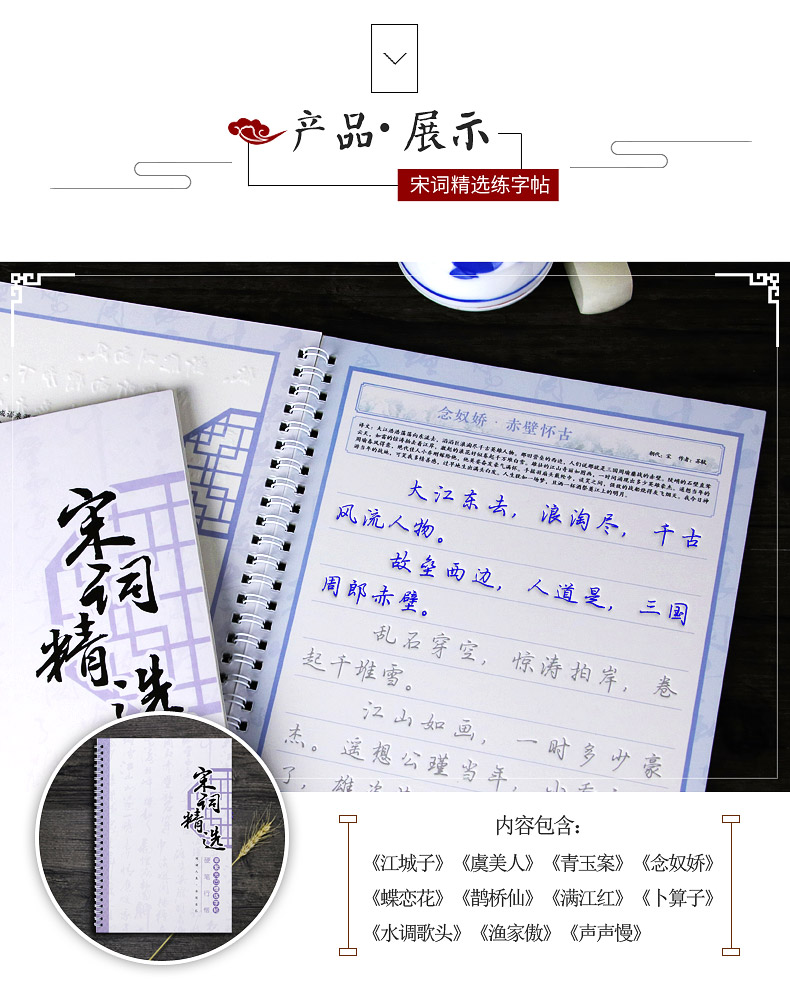 产品·展示
宋词精选练字帖
念奴娇·赤壁怀古
朝代：宋 作者：苏轼
大江东去，浪淘尽，千古
风流人物。
故垒西边，人道是，三国
周郎赤壁。
乱石穿空，惊涛拍岸，卷
起千堆雪。
江山如画，一时多少豪
杰。遥想公瑾当年，小乔
了，雄姿
宋词精选
宋词精选
硬笔行楷
内容包含：
《江城子》《虞美人》《青玉案》《念奴娇》
《蝶恋花》《鹊桥仙》《满江红》《卜算子》
《水调歌头》《渔家傲》《声声慢》